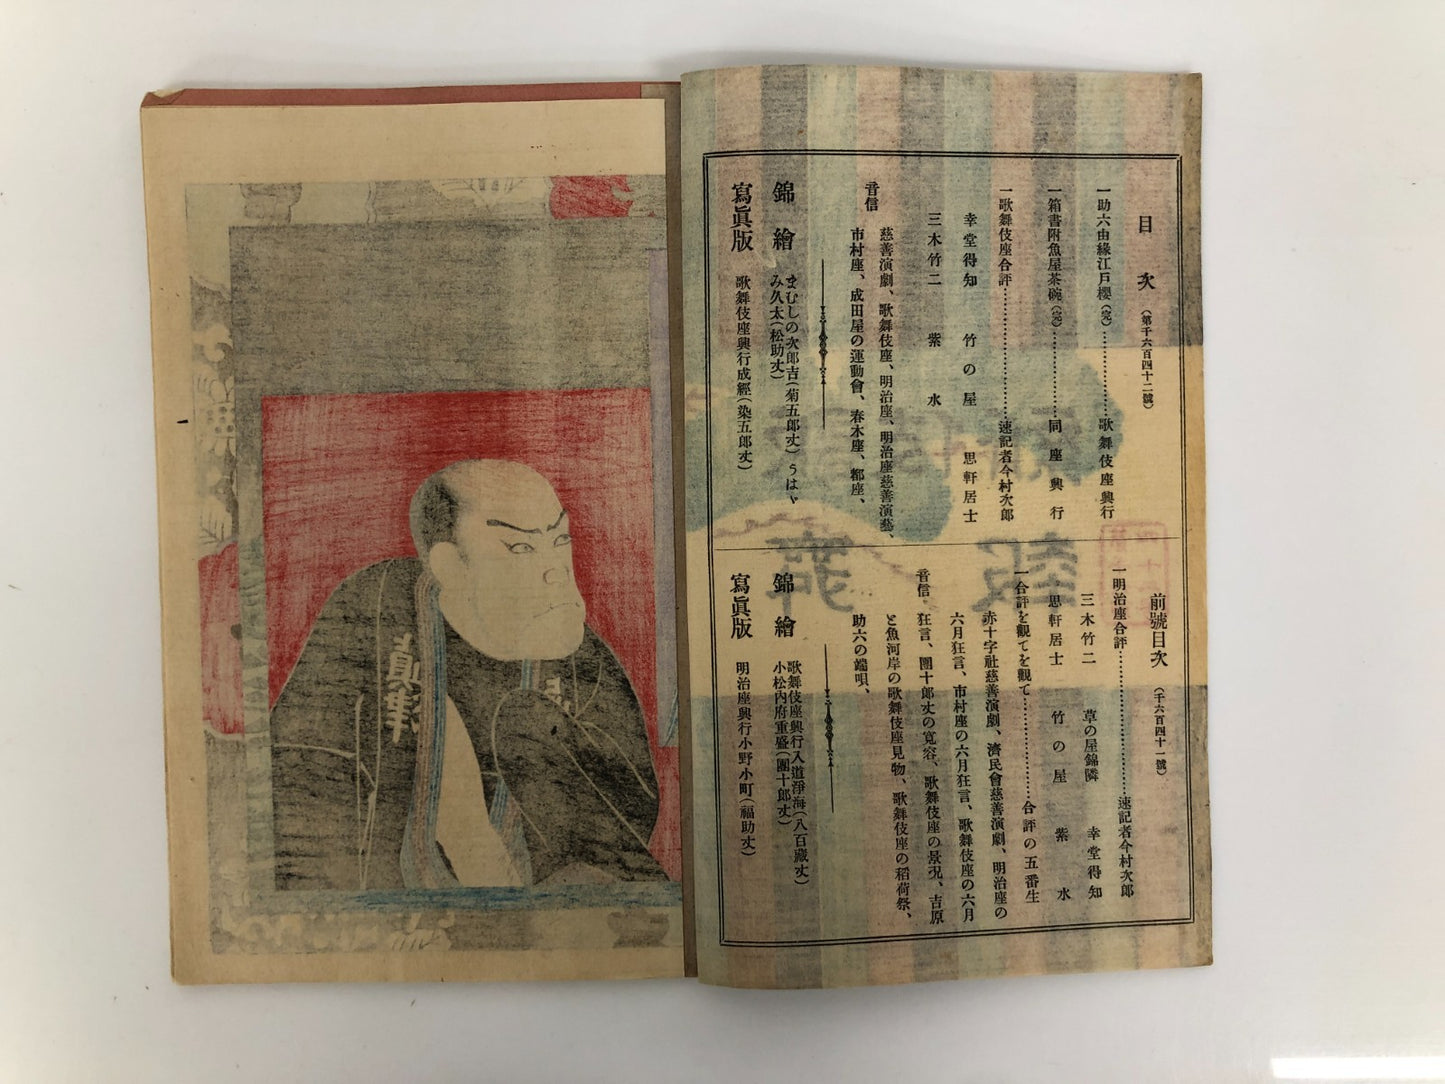 目次（第千六百四十二號）
一助六由緣江戸櫻（完）……………歌舞伎座興行
一箱書附魚屋茶碗（完）……………同座興行
一歌舞伎座合評……………速記者今村次郎
幸堂得知　竹の屋　思軒居士
三木竹二　紫水
音信　慈善演劇、歌舞伎座、明治座、明治座慈善演藝、
市村座、成田屋の運動會、春木座、都座、
錦繪　まむしの次郎吉（菊五郎丈）うはゞ
み久太（松助丈）
寫眞版　歌舞伎座興行成經（染五郎丈）
前號目次（千六百四十一號）
一明治座合評……………速記者今村次郎
三木竹二　草の屋錦隣　幸堂得知
思軒居士　竹の屋　紫水
一合評を觀てを觀て……………合評の五番生
音信　赤十字社慈善演劇、濟民會慈善演劇、明治座の
六月狂言、市村座の六月狂言、歌舞伎座の六月
狂言、團十郎丈の寛容、歌舞伎座の景况、吉原
と魚河岸の歌舞伎座見物、歌舞伎座の稻荷祭、
助六の端唄、
錦繪　歌舞伎座興行入道淨海（八百藏丈）
小松內府重盛（團十郎丈）
寫眞版　明治座興行小野小町（福助丈）